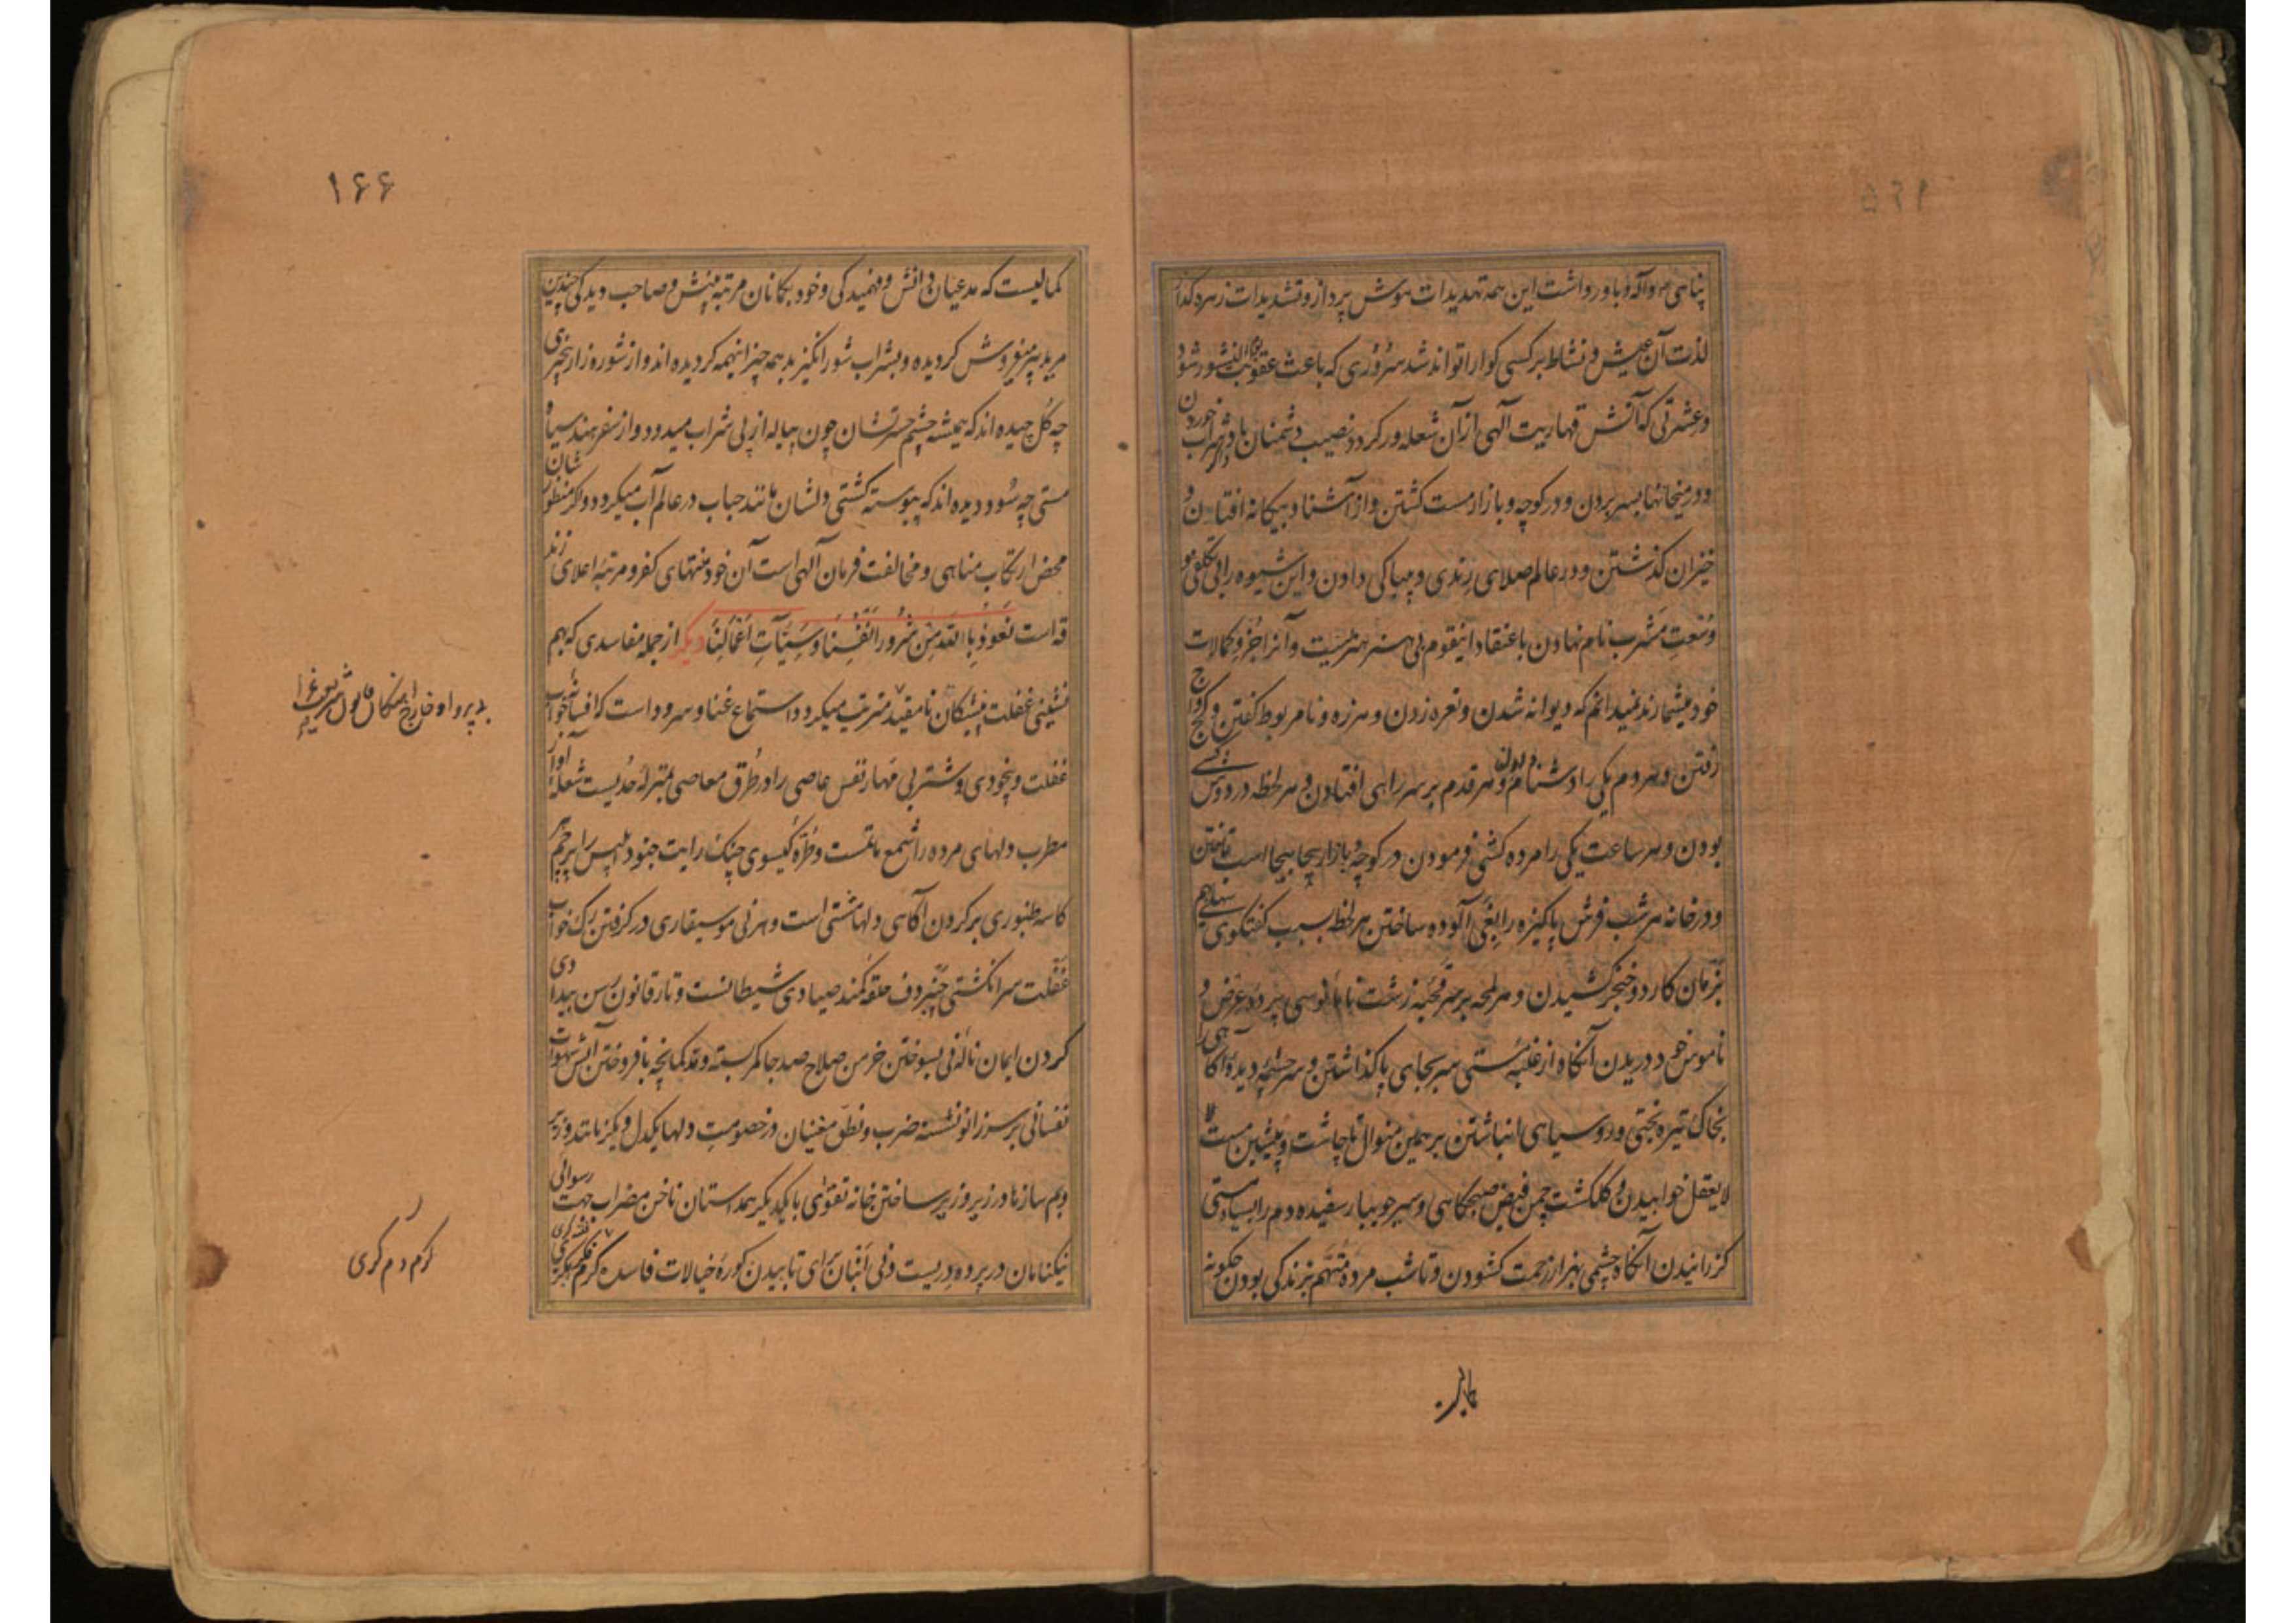 پناهی صو آله و باور داشت این همه تهدیدات هوش پرداز و تشدیدات زهره گداز
لذت آن عیش و نشاط بر کسی گوارا تواند شد سروری که باعث عقوبت شود
و عشرتی که آتش قهاریت آلهی از آن شعله ور گردد نصیب دشمنان باد شراب خوردن
و در میخانها بسر بردن و در کوچه و بازار مست گشتن و از آشنا و بیگانه افتان و
خیزان گذشتن و در عالم صلاهی رندی و بیباکی دادن و این شیوه را بی تکلفی و
وسعت مشرب نام نهادن باعتقاد اینقوم بی هنر هنریست و آنرا جزو کمالات
خود میشمارند نمیدانم که دیوانه شدن و نعره زدن و هرزه و نامربوط گفتن و کج واکج
رفتن و هر دم یکی را دشنام دادن و هر قدم بر سر راهی افتادن و هر لحظه در دوش کسی
بودن و هر ساعت یکی را مرده کشی فرمودن در کوچه و بازار بیجا بیجا اسب تاختن
و در خانه هر شب فرش پاکیزه را بقی آلوده ساختن هر لحظه بسبب گفتگوی سهلی هم
بزمان کارد و خنجر کشیدن و هر لمحه بر سر قحبه زشت نا مانوسی پرده عرض و
ناموس خود دریدن آنگاه از غلبه مستی سر بجای پا گذاشتن و سرچشمه دیده آگاهی را
بخاک تیره بختی و رو سیاهی انباشتن بر همین منوال تا چاشت و پیشین مست
لایعقل خوابیدن و گلگشت چمن فیض صبحگاهی و سیر جویبار سفیده دم را بسیاه مستی
گزرانیدن آنگاه چشمی بهزار زحمت گشودن و تا شب مرده متهم بزندگی بودن چگونه
۱۶۶
کمالیست که مدعیان دانش و فهمیدگی و خود بگمانان مرتبه بینش و صاحب دیدگی چندین
مرید پیر میفروش گردیده و بشراب شور انگیز بد همه چیز اینهمه گردیده اند و از شوره زار بیخبری
چه گل چیده اند که همیشه چشم حسرتشان چون پیاله از پی شراب میدود و از سفر هند سیاه
مستی چه سود دیده اند که پیوسته کشتی دلشان مانند حباب در عالم آب میگردد و اگر منظورشان
محض ارتکاب مناهی و مخالفت فرمان آلهی است آن خود منتهای کفر و مرتبه اعلای زند
قه است نعوذ بالله من شرور انفسنا و سیآت اعمالنا دیگر از جمله مفاسدی که بهم
نشینی غفلت پیشگان نامقید مترتب میگردد استماع غنا و سرود است که افسانه خواب
غفلت و بیخودی و شتر بی مهار نفس عاصی را در طرق معاصی بمنزله حدیست شعله آواز
مطرب دلهای مرده را شمع ماتمست و طره گیسوی چنگ رایت جنود ابلیس را پرچم
کاسه طنبوری بر کردن آگاهی دلها مشتی است و هر نی موسیقاری در گرفتن رگ خواب
غفلت سر انگشتی چنبر دف حلقه کمند صیادی شیطانست و تار قانون رسن بیدادی
کردن ایمان ناله نی بسوختن خرمن صلاح صد جا کمر بسته و قد کمانچه بافروختن آتش شهوات
نفسانی بر سر زانو نشسته ضرب و نطق مغنیان در خصومت دلها یکدل و یکزبانند و زیر
و بم سازها در زیر و زبر ساختن خانه تقوای با یکدیگر همداستان ناخن مضراب جهت رسوائی
نیکنامان در پرده دریست و نی انبان برای تابیدن کوره خیالات فاسده گرم
گرم دم گری